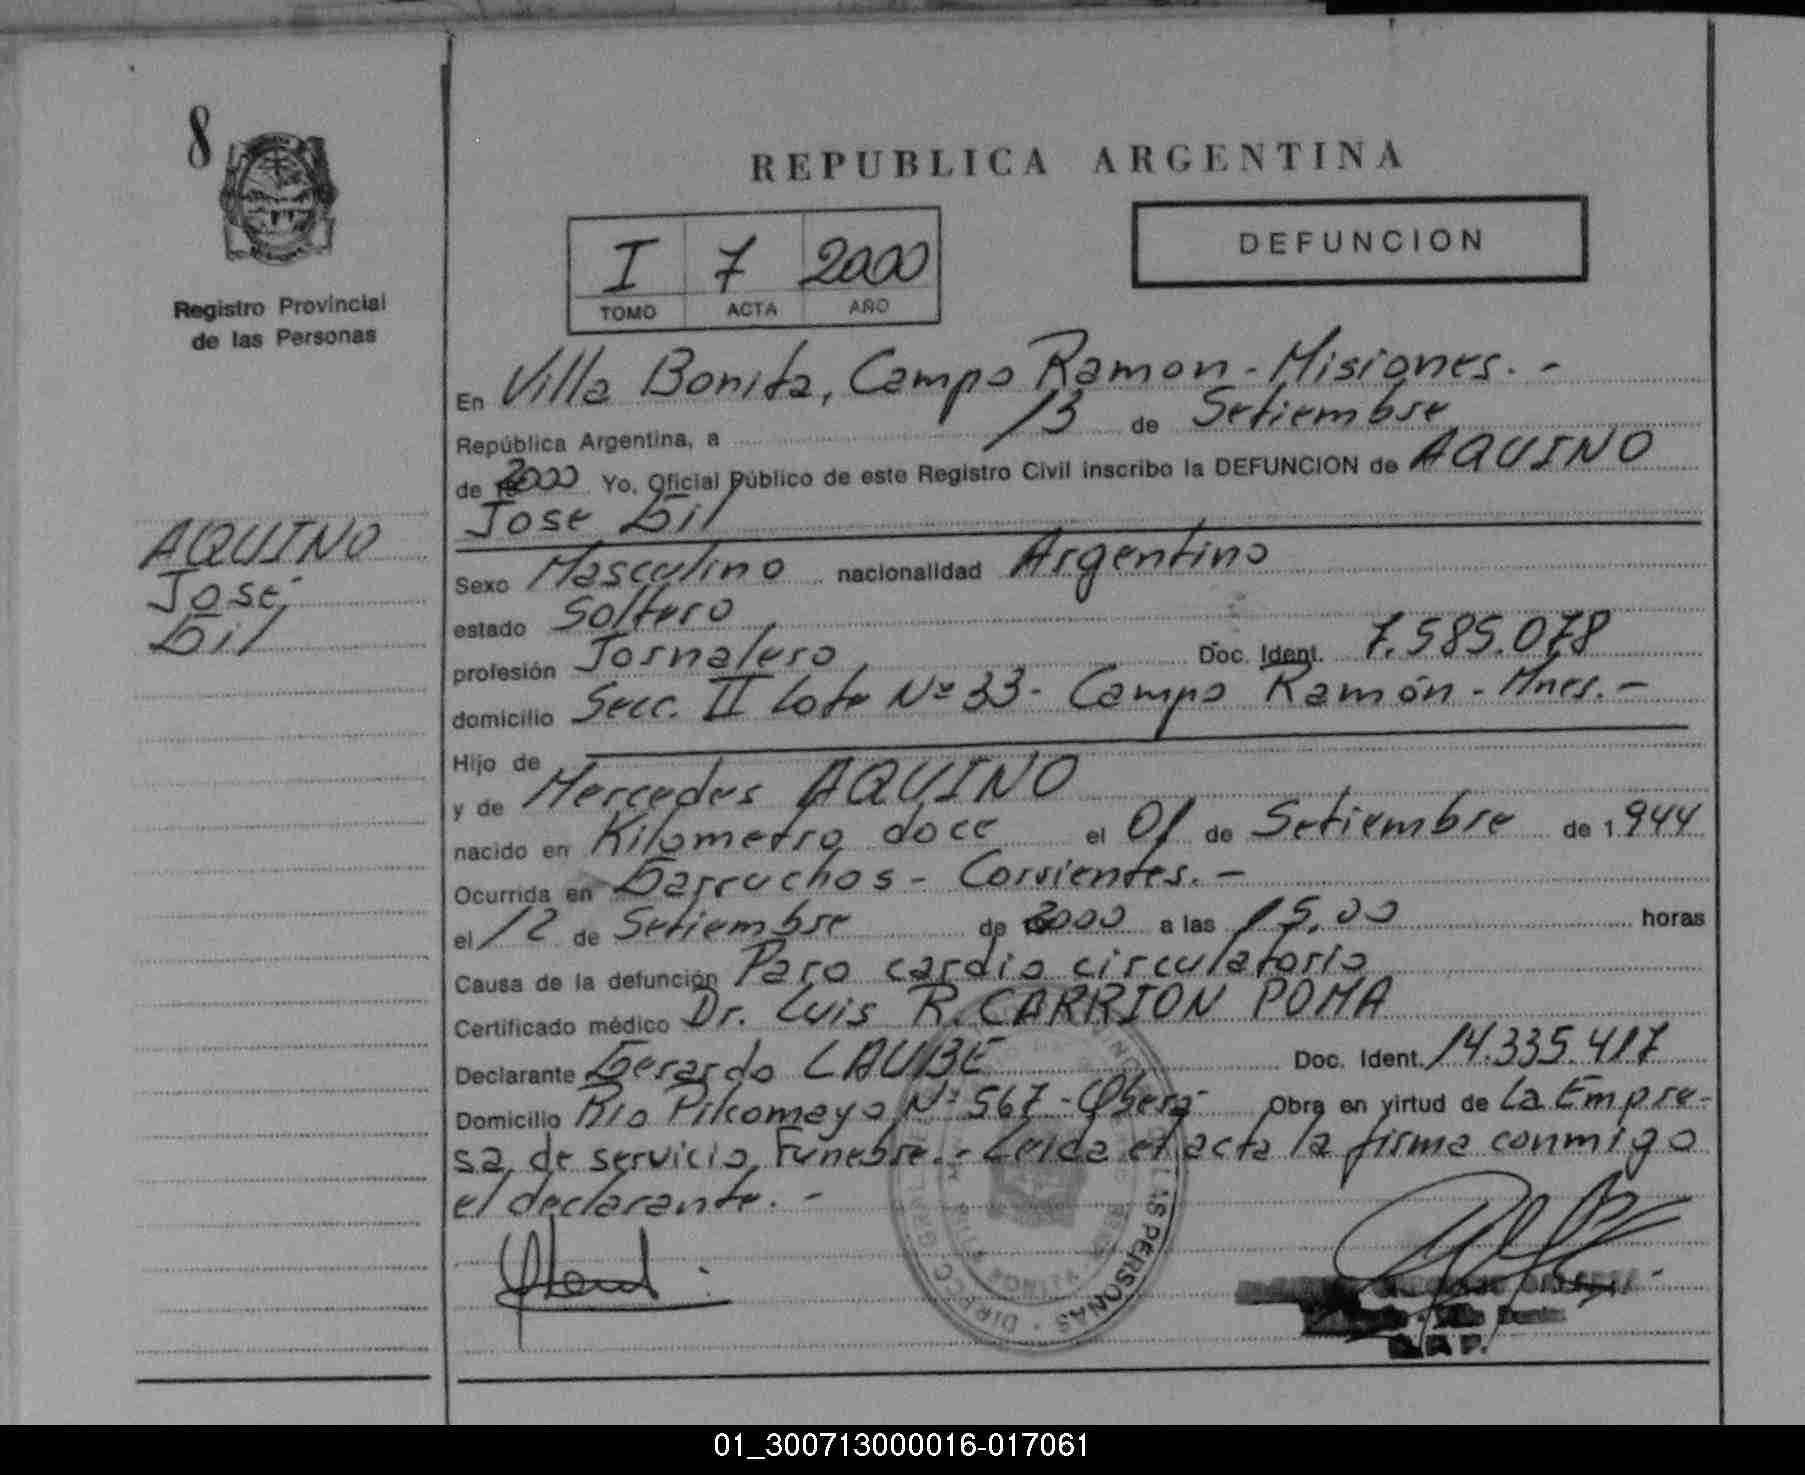 8
Registro Provincial
de las Personas
AQUINO
José
Gil
REPUBLICA ARGENTINA
I 7 2000
TOMO ACTA AÑO
DEFUNCION
En Villa Bonita, Campo Ramon - Misiones. -
República Argentina, a 13 de Setiembre
de 2000 Yo, Oficial Público de este Registro Civil inscribo la DEFUNCION de AQUINO
Jose Gil
Sexo Masculino nacionalidad Argentino
estado Soltero
profesión Jornalero Doc. Ident. 7.585.078
domicilio Secc. II Lote Nº 33 - Campo Ramón - Mnes. -
Hijo de
y de Mercedes AQUINO
nacido en Kilometro doce el 01 de Setiembre de 1944
Ocurrida en Garruchos - Corrientes. -
el 12 de Setiembre de 2000 a las 15,00 horas
Causa de la defunción Paro cardio circulatorio
Certificado médico Dr. Luis R. CARRION POMA
Declarante Gerardo LAUBE Doc. Ident. 14.335.417
Domicilio Rio Pilcomayo Nº 567 - Oberá Obra en virtud de La Empre-
sa de servicio Funebre. - Leida el acta la firma conmigo
el declarante. -
DIRECC GRAL LAS PERSONAS
01_300713000016-017061